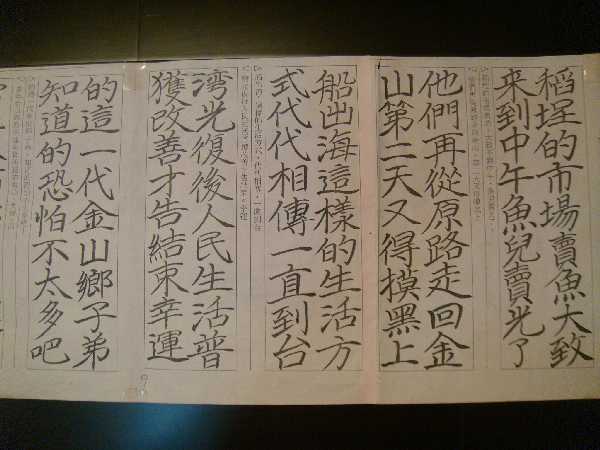 稻埕的市場賣魚大致
來到中午魚兒賣光了
他們再從原路走回金
山第二天又得摸黑上
船出海這樣的生活方
式代代相傳一直到台
湾光復後人民生活普
獲改善才告結束幸運
的這一代金山鄉子弟
知道的恐怕不太多吧